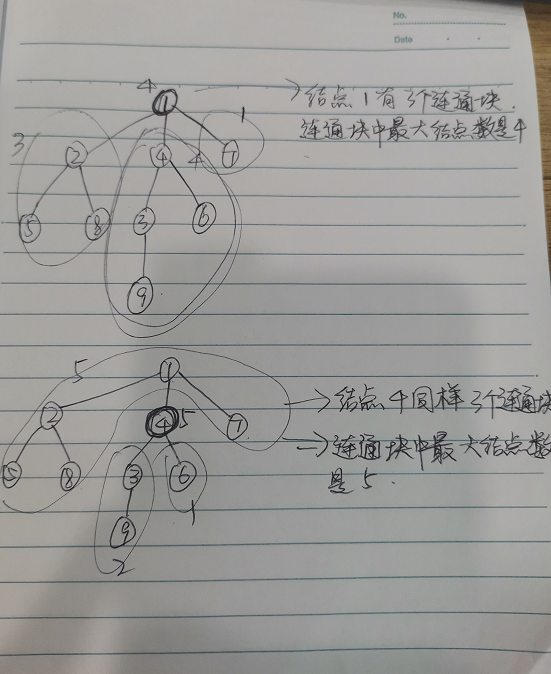 No.
Date
4
1
→结点1有3个连通块.
连通块中最大结点数是4
1
3
2
4
4
7
5
8
3
6
9
5
1
→结点4同样3个连通块
2
4
5
7
→连通块中最大结点数
是5.
5
8
3
6
1
9
2